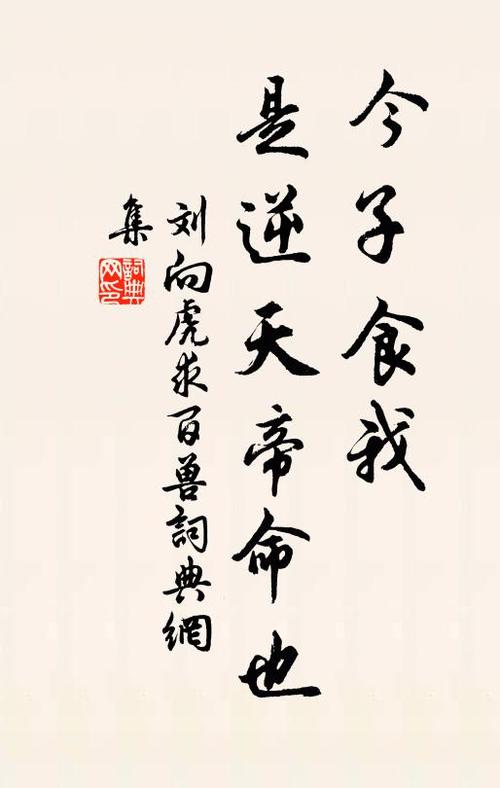 今子食我
是逆天帝命也
刘向虎求百兽詞典網
集
詞典网印